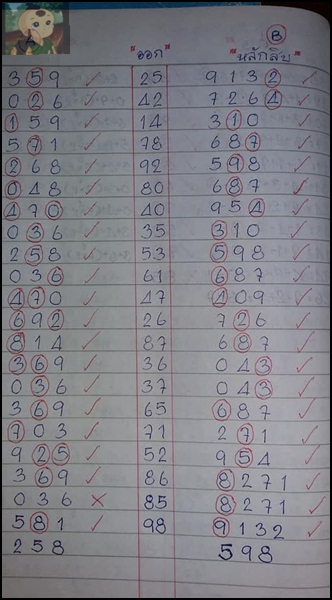 B
"ออก" "หลักสิบ"
359 ✓ 25 9132 ✓
026 ✓ 42 7264 ✓
159 ✓ 14 310 ✓
571 ✓ 78 687 ✓
268 ✓ 92 598 ✓
048 ✓ 80 687 ✓
470 ✓ 40 954 ✓
036 ✓ 35 310 ✓
258 ✓ 53 598 ✓
036 ✓ 61 687 ✓
470 ✓ 47 409 ✓
692 ✓ 26 726 ✓
814 ✓ 87 687 ✓
369 ✓ 36 043 ✓
036 ✓ 37 043 ✓
369 ✓ 65 687 ✓
703 ✓ 71 271 ✓
925 ✓ 52 954 ✓
369 ✓ 86 8271 ✓
036 ✗ 85 8271 ✓
581 ✓ 98 9132 ✓
258 598